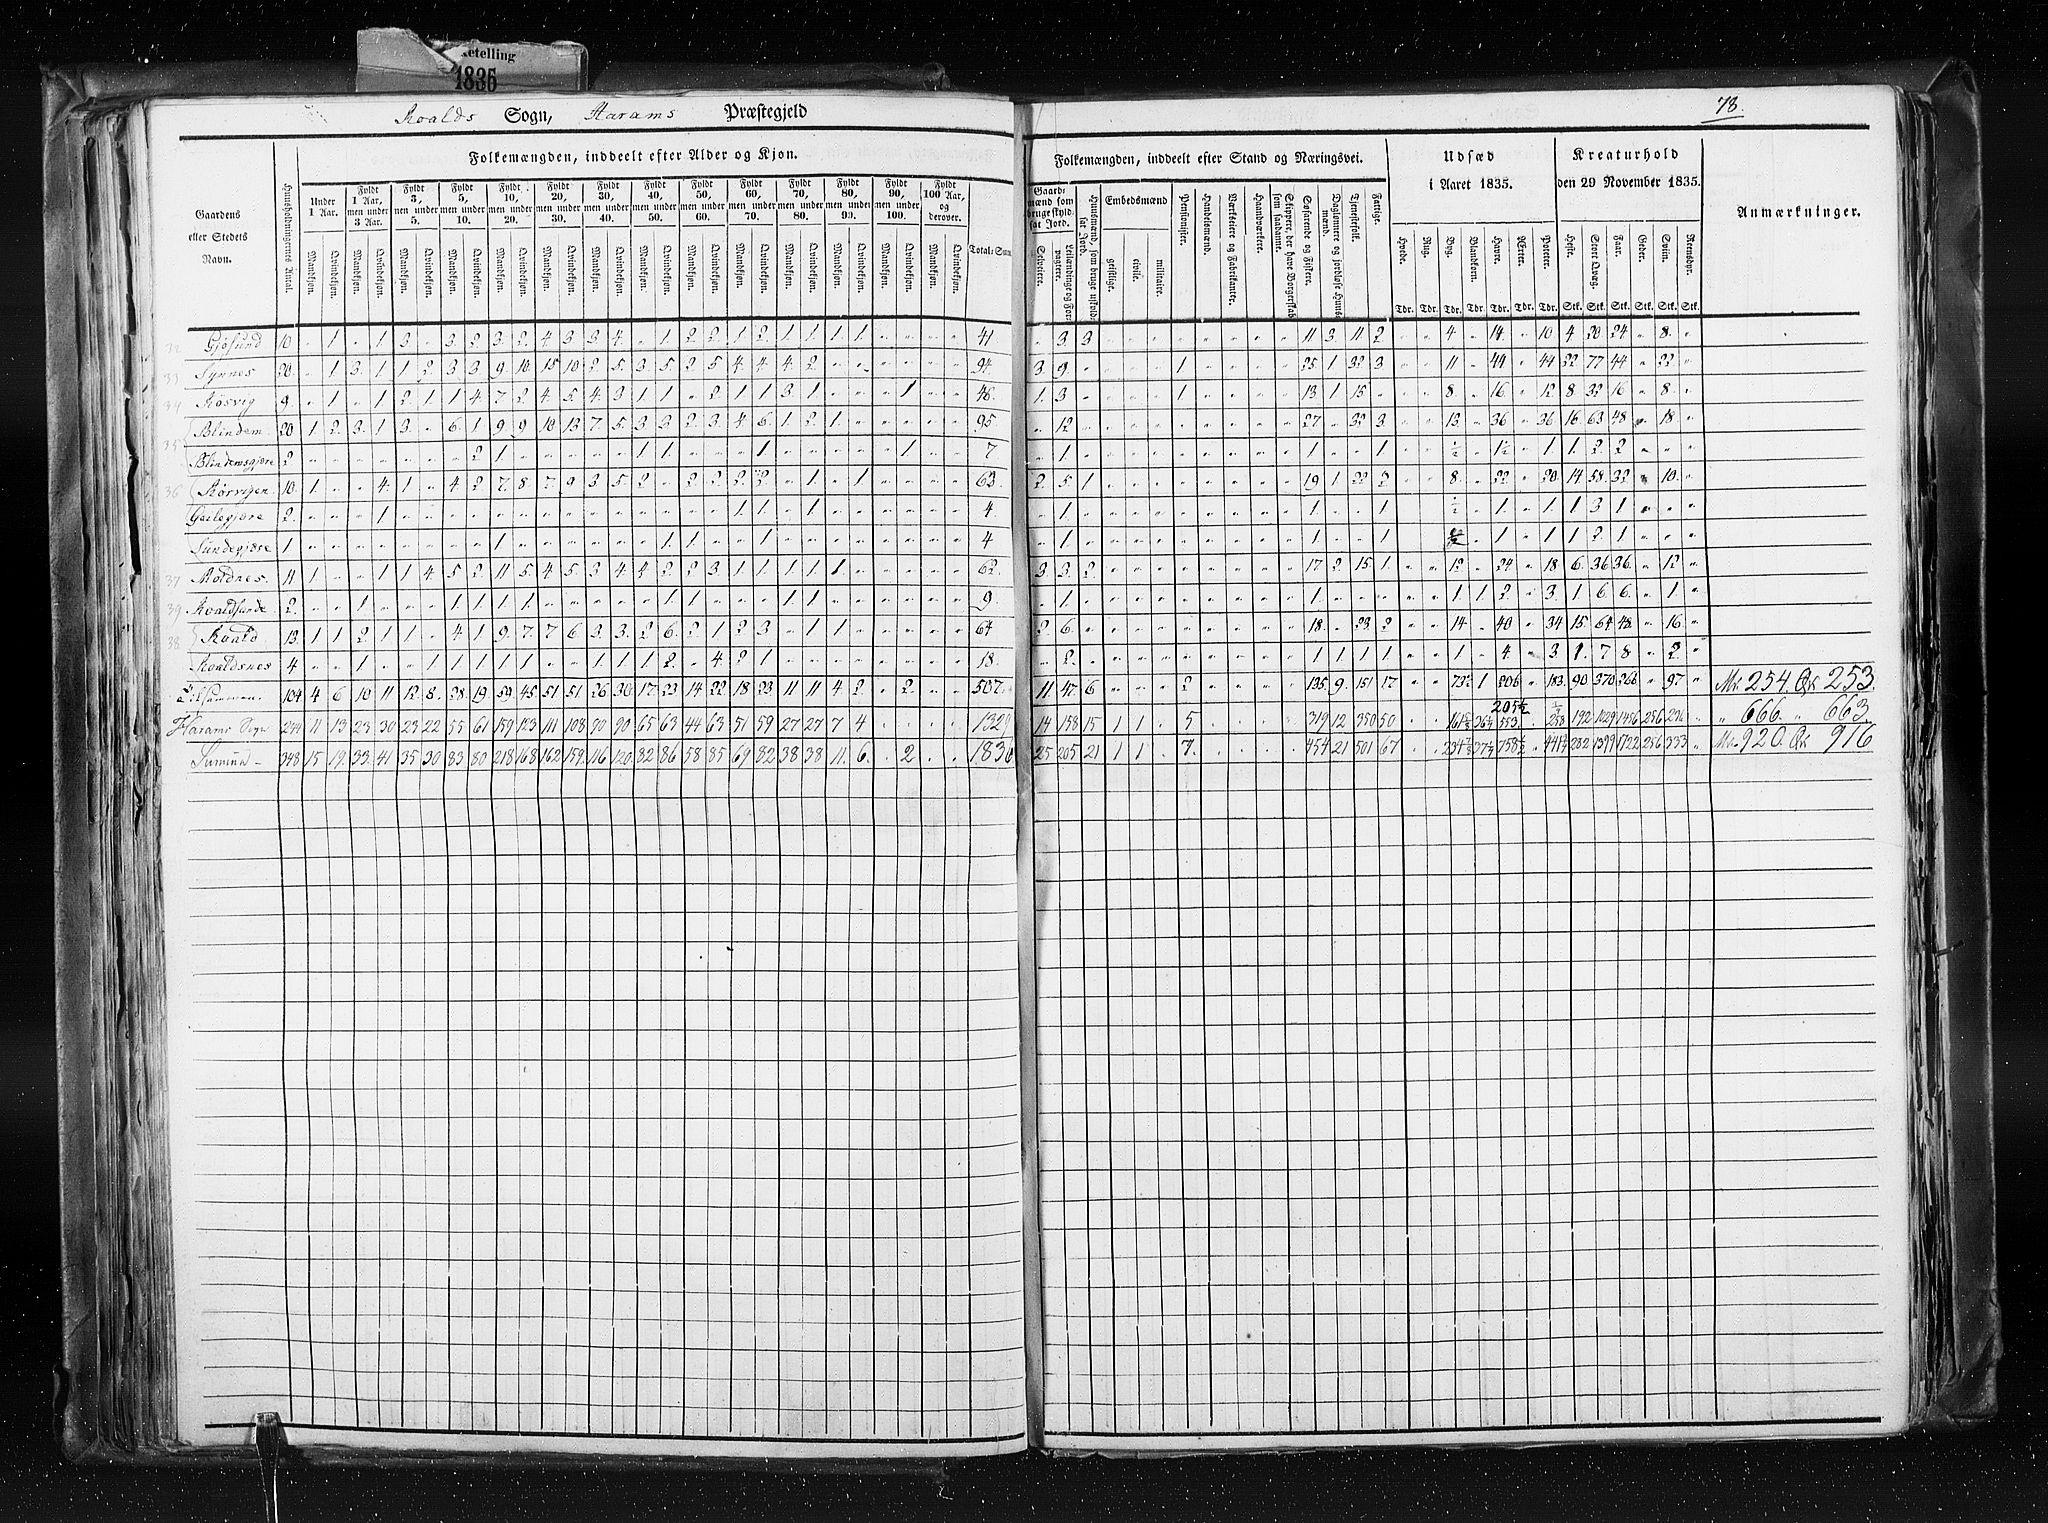 ketelling
1835
Roalds Sogn, Harams Præstegjeld
78.
Folkemængden, inddeelt efter Alder og Kjøn.
Folkemængden, inddeelt efter Stand og Næringsvei.
Udsæd i Aaret 1835.
Kreaturhold den 29 November 1835.
Anmærkninger.
Gaardens eller Stedets Navn.
Huusholdningernes Antal.
Under 1 Aar.
Fyldt 1 Aar, men under 3 Aar.
Fyldt 3, men under 5.
Fyldt 5, men under 10.
Fyldt 10, men under 20.
Fyldt 20, men under 30.
Fyldt 30, men under 40.
Fyldt 40, men under 50.
Fyldt 50, men under 60.
Fyldt 60, men under 70.
Fyldt 70, men under 80.
Fyldt 80, men under 90.
Fyldt 90, men under 100.
Fyldt 100 Aar, og derover.
Mandkjøn. Qvindekjøn.
Total-Sum.
Gaardmænd som bruge skyldsat Jord.
Selveiere.
Leilændinge og Forpagtere.
Huusmænd, som bruge uskyldsat Jord.
Embedsmænd
geistlige. civile. militaire.
Pensionister.
Handelsmænd.
Værkseiere og Fabrikanter.
Haandværkere.
Skippere, der have Borgerskab som saadanne.
Søfarende og Fiskere.
Daglønnere og jordløse Huusmænd.
Tjenestefolk.
Øvrige.
Hvede. Rug. Byg. Blandkorn. Havre. Ærter. Poteter.
Tdr. Tdr. Tdr. Tdr. Tdr. Tdr. Tdr.
Heste. Stort Qvæg. Faar. Geder. Sviin. Rensdyr.
Stk. Stk. Stk. Stk. Stk. Stk.
32 Gjøsund 10 " 1 " 1 3 " 3 2 3 2 4 3 3 4 " 1 2 2 1 2 1 1 1 1 " " " " 41 " 3 3 " " " " " " " " 11 3 11 2 " " 4 " 14 " 10 4 20 24 " 8 "
33 Synnes 20 " 1 3 1 1 2 3 3 9 10 15 10 2 5 3 5 2 5 4 4 4 2 " " " " " " 94 3 9 " " " " 1 " " " " 25 1 32 3 " " 11 " 44 " 44 22 77 44 " 22 "
34 Røsvig 9 " 1 " 1 2 1 1 4 7 2 4 5 4 3 1 1 " 2 1 1 3 1 " " " 1 " " 46 1 3 " " " " 1 " " " " 13 1 15 " " " 8 " 16 " 12 8 32 16 " 8 "
35 Blindem 20 1 2 3 1 3 " 6 1 9 9 10 13 7 5 3 3 2 3 4 6 1 2 1 " " " " " 95 " 12 " " " " " " " " " 27 " 32 3 " " 13 " 36 " 36 16 63 48 " 18 "
Blindemsgjære 2 " " " " " " " 2 1 " " " " " 1 1 " " " 1 " " " " " 1 " " 7 " 1 " " " " " " " " " 1 " " 1 " " ½ " 1½ " 1 1 2 2 " " "
36 Rørvigen 10 1 " " 4 1 " 4 2 7 8 7 9 3 5 2 " 2 2 2 2 " 1 " 1 " " " " 63 2 5 1 " " " " " " " " 19 1 22 2 " " 8 " 22 " 20 14 58 32 " 10 "
Geilegjære 2 " " " 1 " " " " " " " " " " " " " " 1 1 " 1 " " " " " " 4 " 1 " " " " " " " " " 1 " " 1 " " ½ " 1 " 1 1 3 1 " " "
Sundegjære 1 " " " " " " " " 1 " " " " " " 1 1 " " 1 " " " " " " " " 4 " 1 " " " " " " " " " 1 " " 1 " " ½ " 1 " 1 1 2 1 " " "
37 Moldnes 11 1 " " 1 1 4 5 2 11 5 4 5 3 4 4 2 2 3 1 1 1 1 1 " " " " " 62 3 3 2 " " " " " " " " 17 2 15 1 " " 12 " 24 " 18 6 36 36 " 12 "
39 Roaldsunde 2 " " 1 " " " 1 1 1 1 " " " " " 1 1 " " " 1 1 " " " " " " 9 " 1 " " " " " " " " " 1 " " " " " 1 1 2 " 3 1 6 6 " 1 "
38 Roald 13 1 1 2 1 1 " 4 1 9 7 7 6 3 3 2 6 2 1 2 3 " 1 1 " " " " " 64 2 6 " " " " " " " " " 18 " 23 2 " " 14 " 40 " 34 15 64 48 " 16 "
Roaldsnes 4 " " 1 " " 1 1 1 1 1 " " 1 1 1 2 " 4 2 1 " " " " " " " " 18 " 2 " " " " " " " " " 1 1 1 1 " " 1 " 4 " 3 1 7 8 " 2 "
Tilsammen 104 4 6 10 11 12 8 28 19 59 45 51 51 26 30 17 23 14 22 18 23 11 11 4 2 " 2 " " 507 11 47 6 " " " 2 " " " " 135 9 151 17 " " 73½ 1 206 " 183 90 370 266 " 97 " Mk. 254. Qk. 253.
205½
Harams Sogn 244 11 13 23 30 23 22 55 61 159 123 111 108 90 90 65 63 44 63 51 59 27 27 7 4 1329 14 158 15 1 1 " 5 319 12 350 50 553 258 192 1029 1456 256 236 " 666. " 663.
Summa 348 15 19 33 41 35 30 83 80 218 168 162 159 116 120 82 86 58 85 69 82 38 38 11 6 " 2 " " 1836 25 205 21 1 1 " 7 454 21 501 67 282 1399 1722 256 333 " Mk. 920. Qk. 916